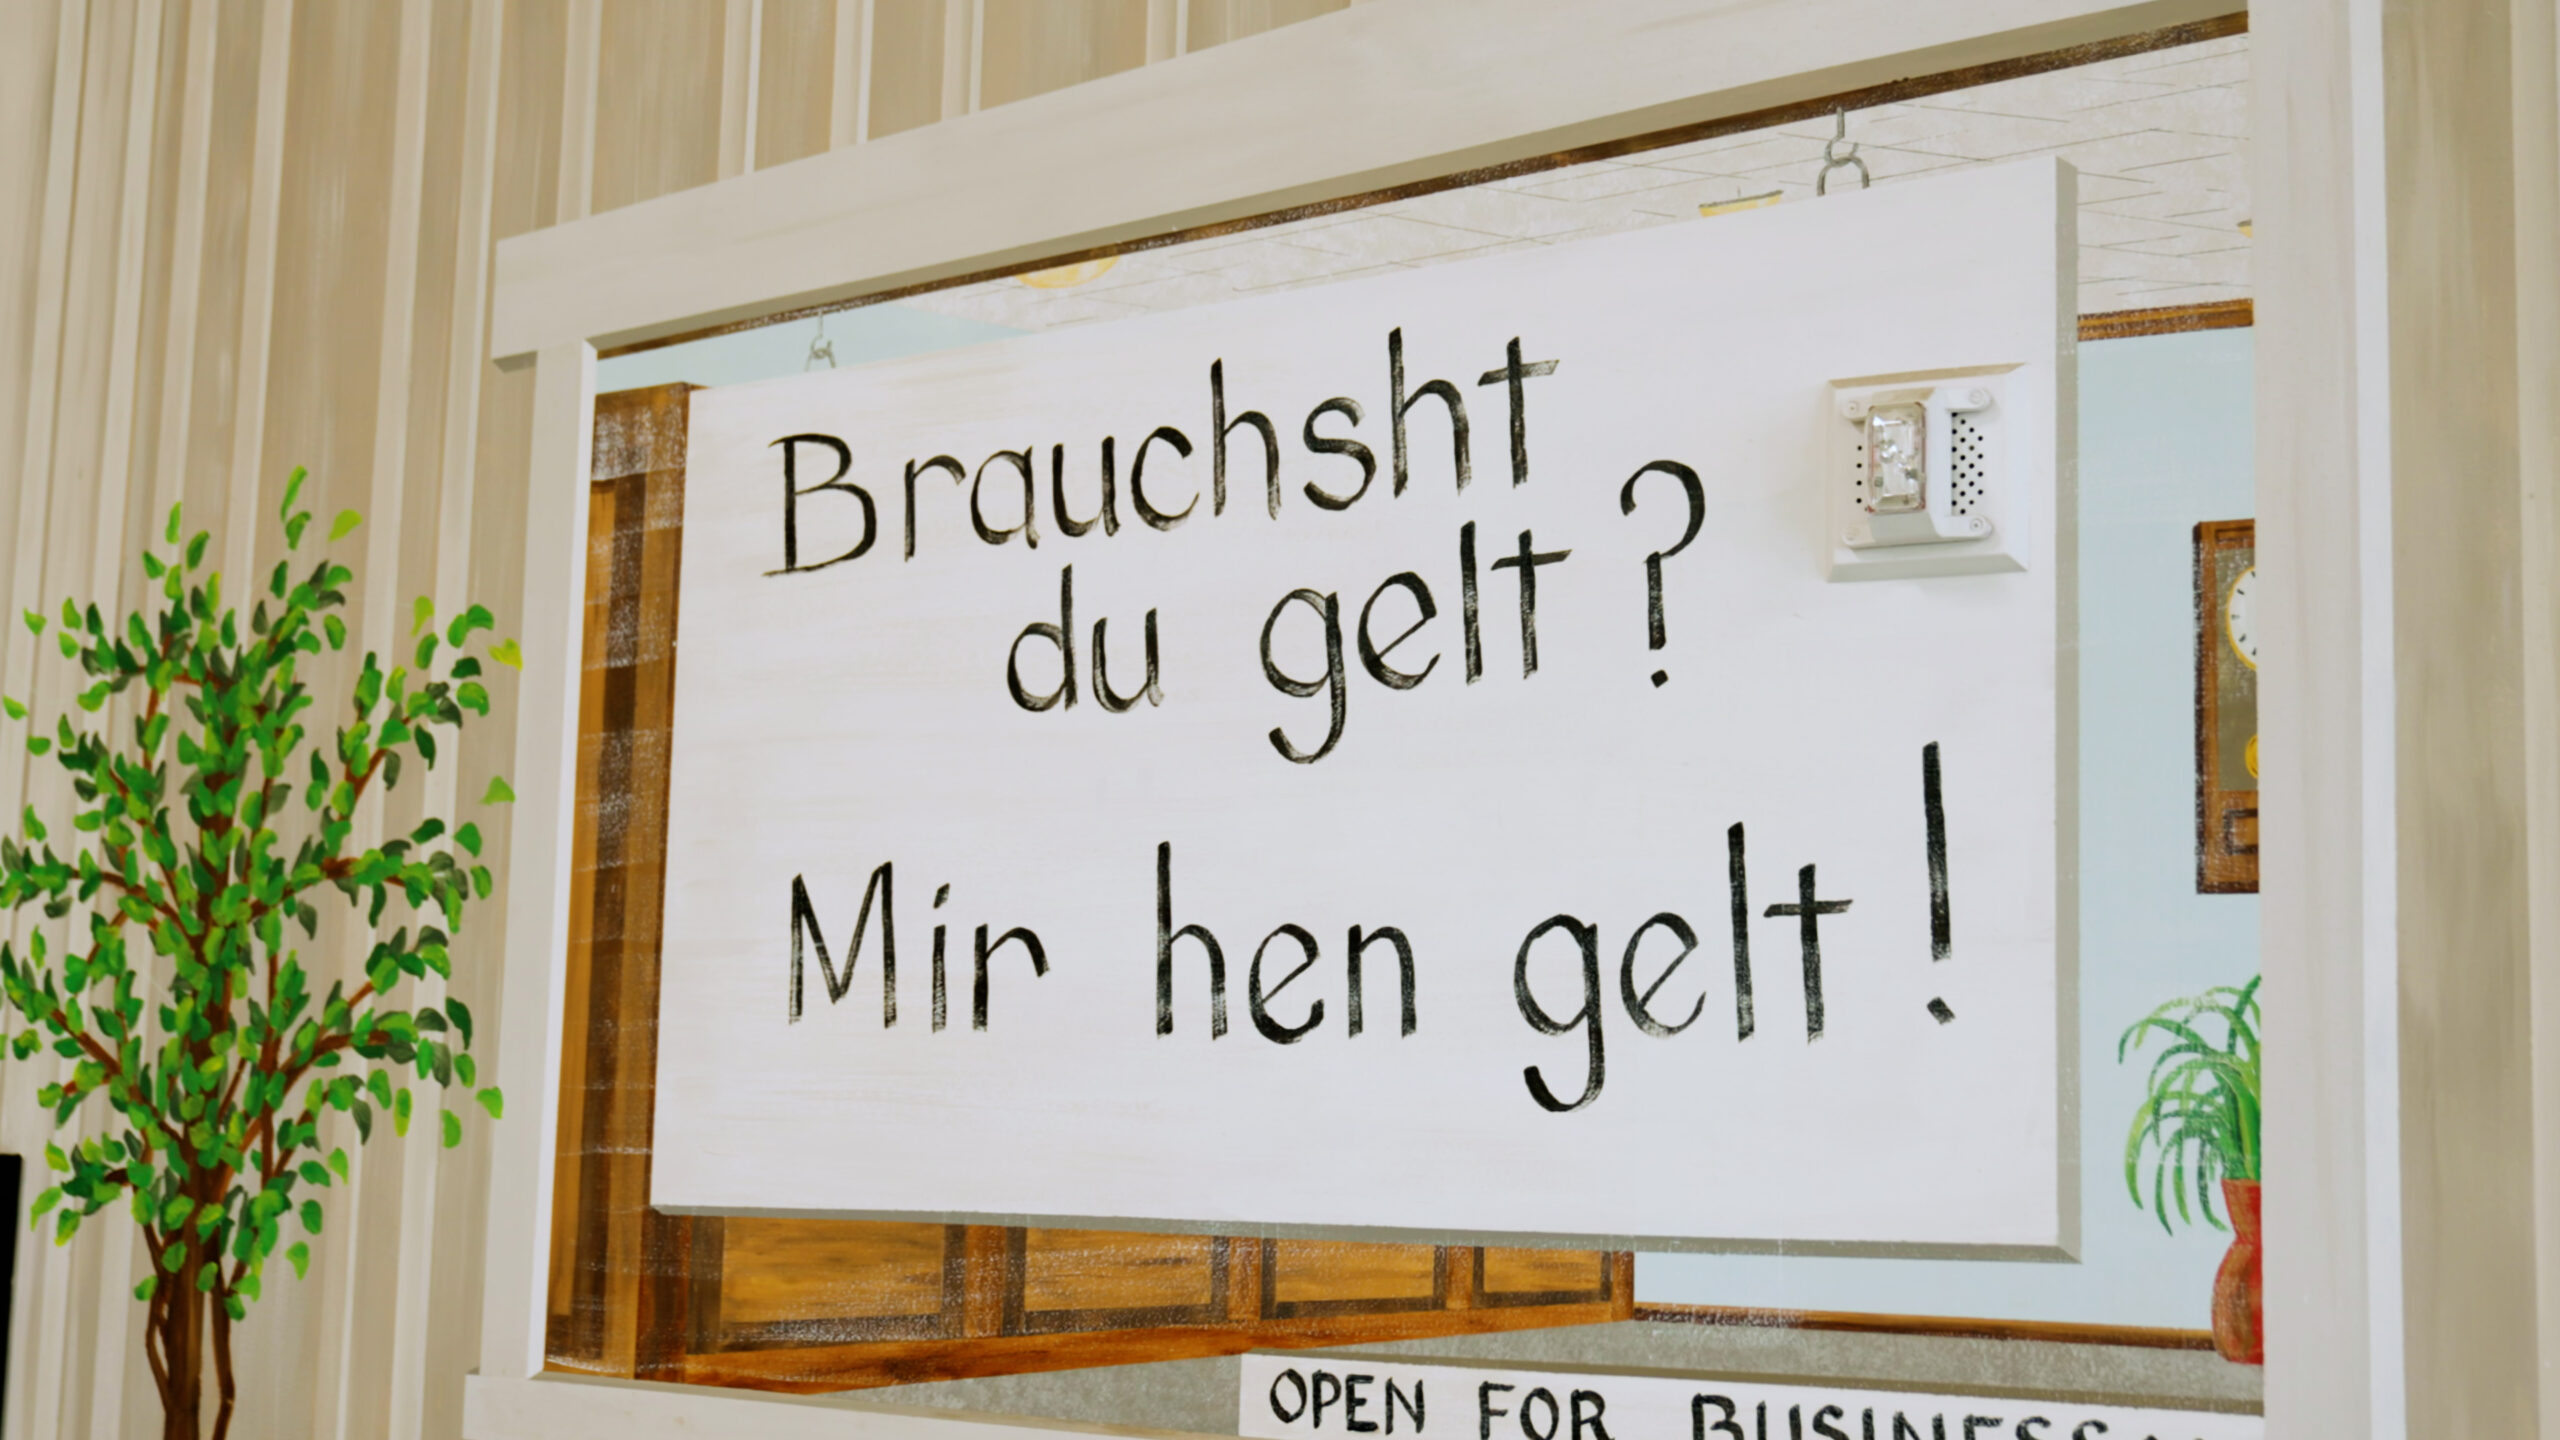 Brauchsht
du gelt?
Mir hen gelt!
OPEN FOR BUSINESS